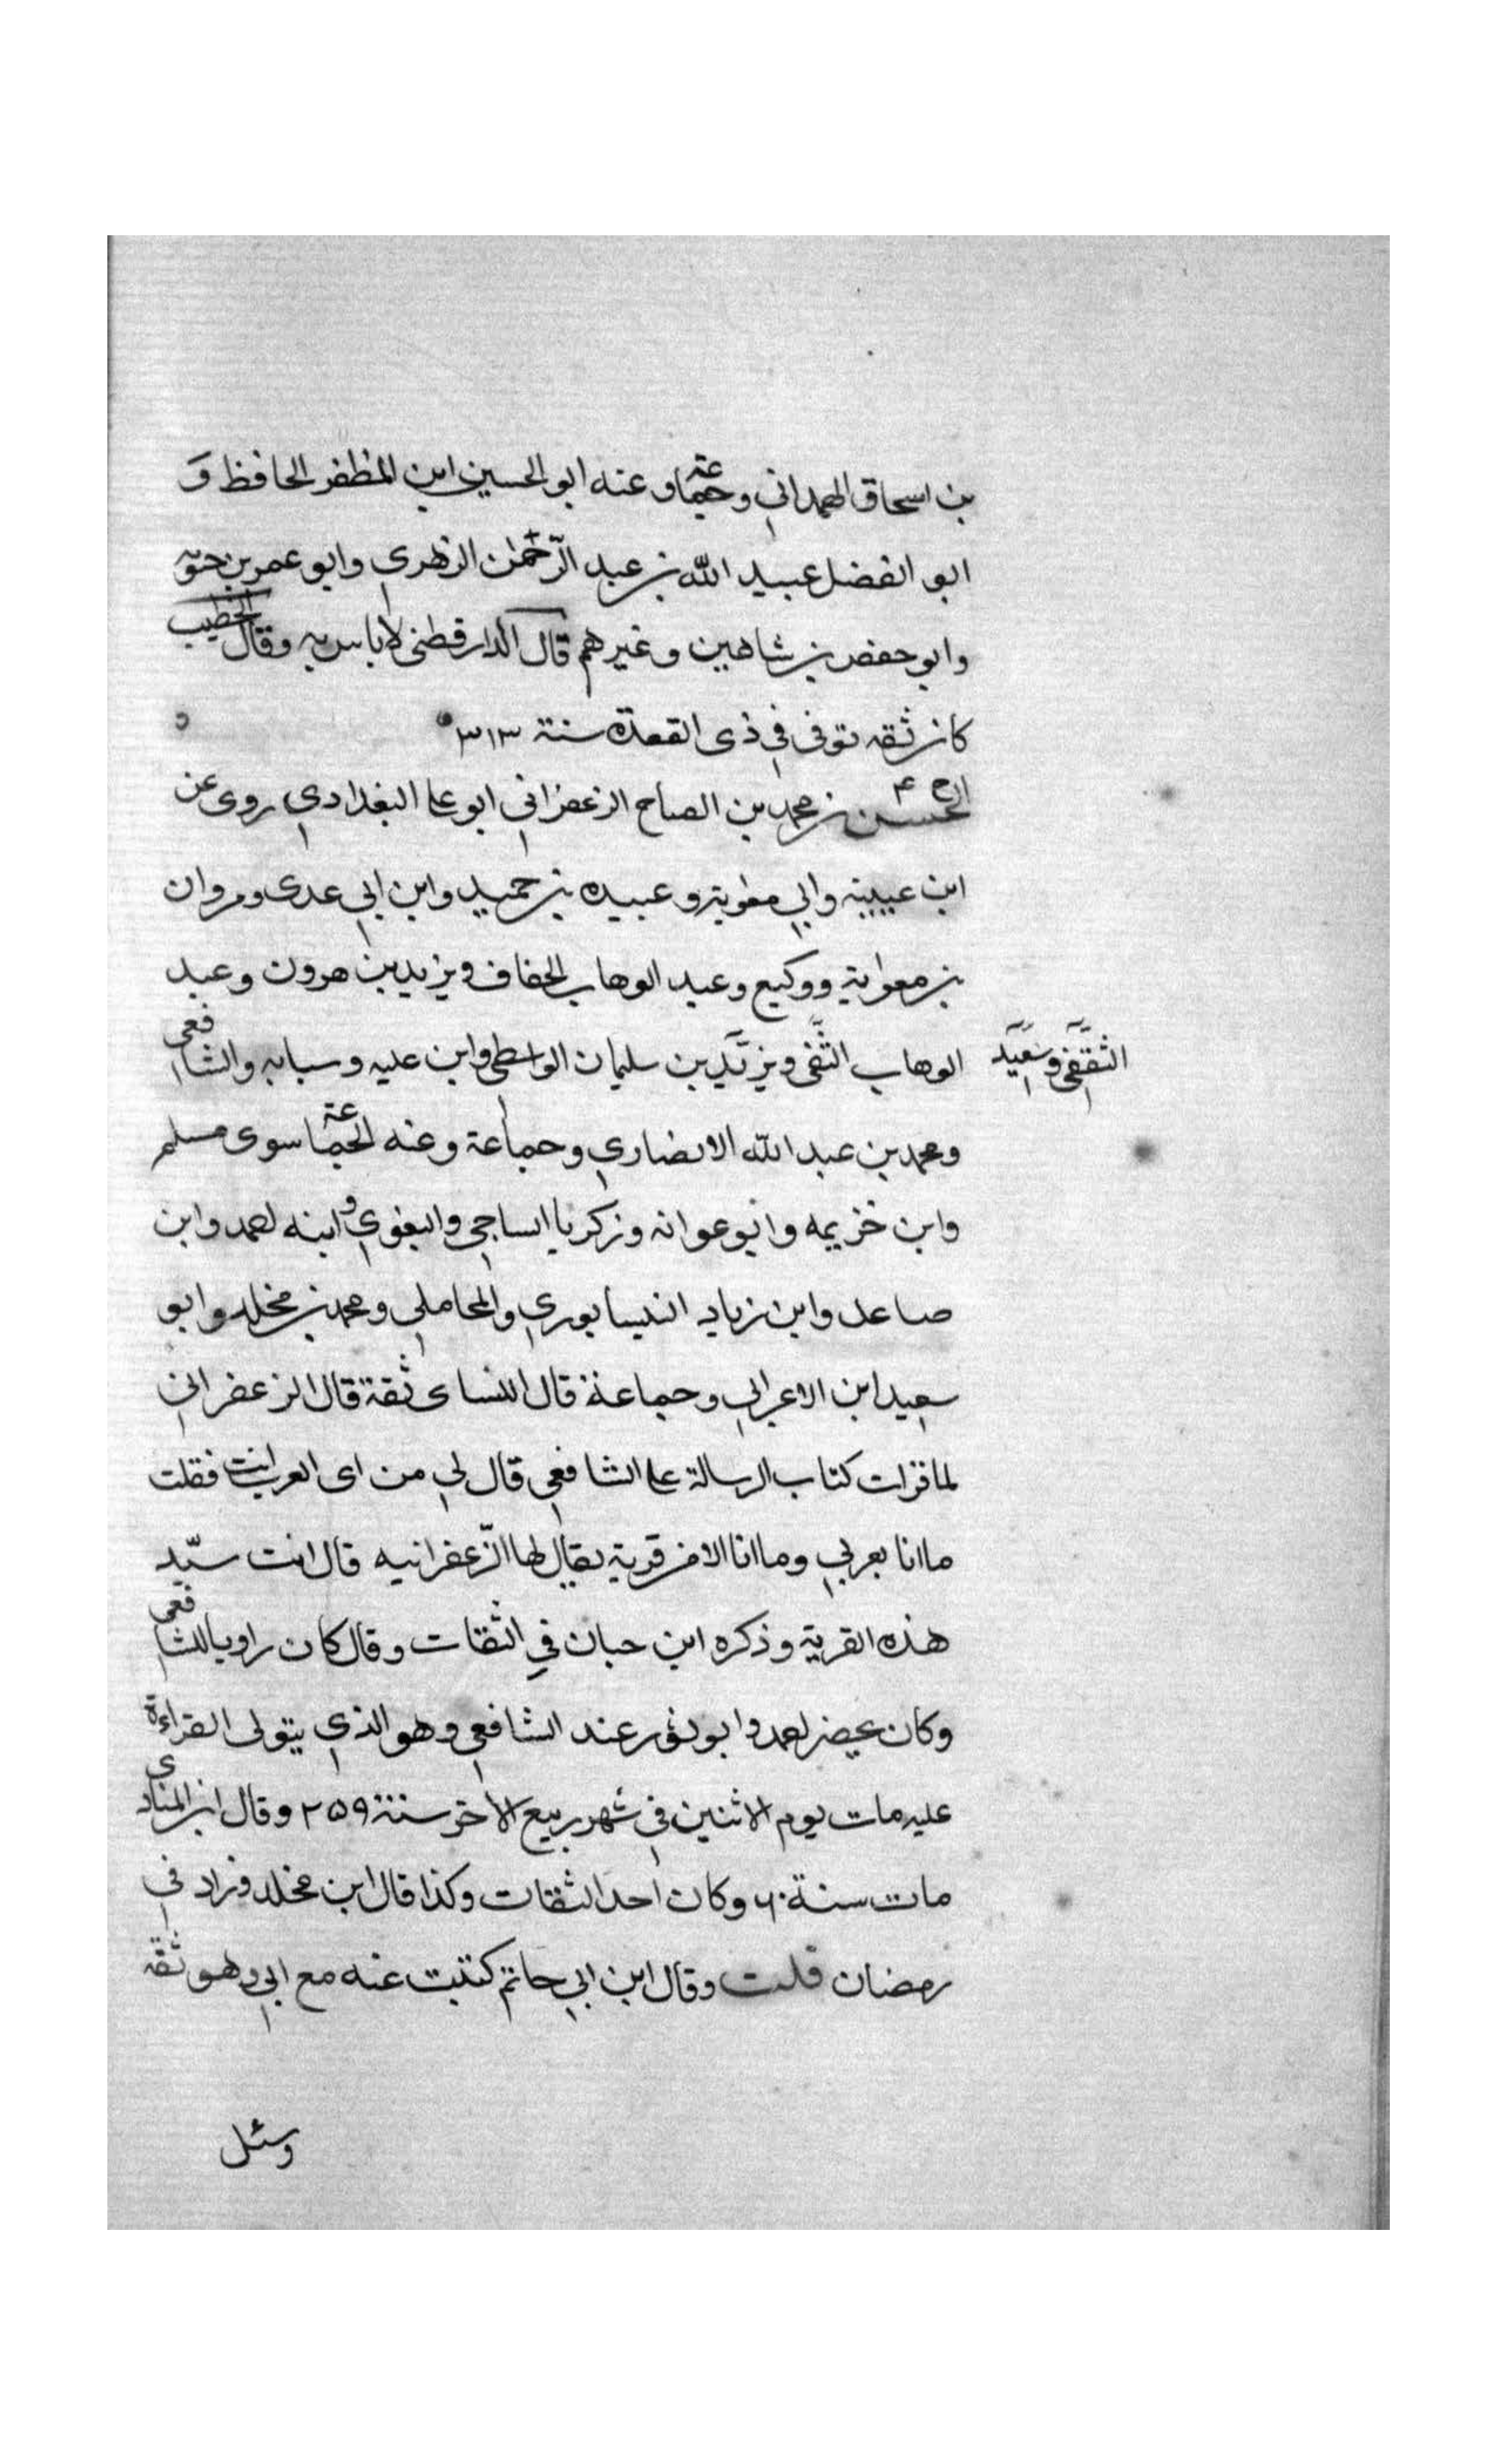 بن اسحاق الهمداني وجماعة وعنه ابو الحسين ابن المظفر الحافظ و
ابو الفضل عبيد الله بن عبد الرّحمٰن الزهري وابو عمر بن حيويه
وابو حفص بن شاهين وغيرهم قال الدارقطنى لا باس به وقال الخطيب
كان ثقه توفى في ذى القعدة سنة ٣١٣
خ ٤
الحسن بن محمد بن الصباح الزعفراني ابو على البغدادي روى عن
ابن عيينه وابي معوية وعبيده بن حميد وابن ابي عدى ومروان
بن معوية ووكيع وعبد الوهاب الخفاف ويزيد بن هرون وعبد
الوهاب الثقفى ويزيد بن سليمان الواسطى وابن عليه وسبابه والشافعى
الثقفى وسعيد
ومحمد بن عبد الله الانصاري وجماعة وعنه الجماعة سوى مسلم
وابن خزيمه وابو عوانه وزكريا الساجي والبغوي وابنه احمد وابن
صاعد وابن زياد النيسابوري والمحاملي ومحمد بن مخلد وابو
سعيد ابن الاعرابي وجماعة قال النساى ثقة قال الزعفراني
لما قرات كتاب الرسالة على الشافعي قال لي من اى العرب انت فقلت
ما انا بعربي وما انا الا من قرية يقال لها الزّعفرانيه قال انت سيّد
هذه القرية وذكره ابن حبان في الثقات وقال كان راويا للشافعى
وكان يحضر احمد وابو ثور عند الشافعي وهو الذي يتولى القراءة
عليه مات يوم الاثنين في شهر ربيع الاخر سنة ٢٥٩ وقال ابن المنادى
مات سنة ٦٠ وكان احد الثقات وكذا قال ابن مخلد وزاد في
رمضان قلت وقال ابن ابي حاتم كتبت عنه مع ابي وهو ثقه
وسئل